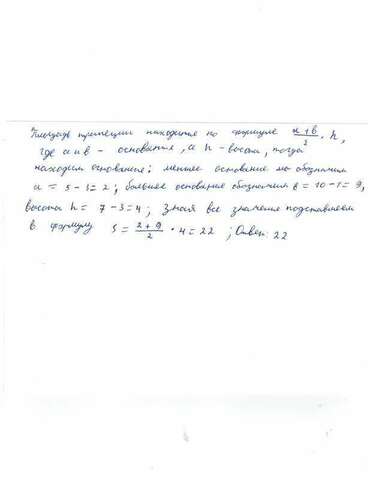 Площадь трапеции находится по формуле a+b/2 · h,
где a и b - основания, а h - высота, тогда
находим основания: меньшее основание мы обозначим
a = 5 - 3 = 2; большее основание обозначим b = 10 - 1 = 9,
высота h = 7 - 3 = 4; Зная все значения подставляем
в формулу S = 2+9/2 · 4 = 22 ; Ответ: 22